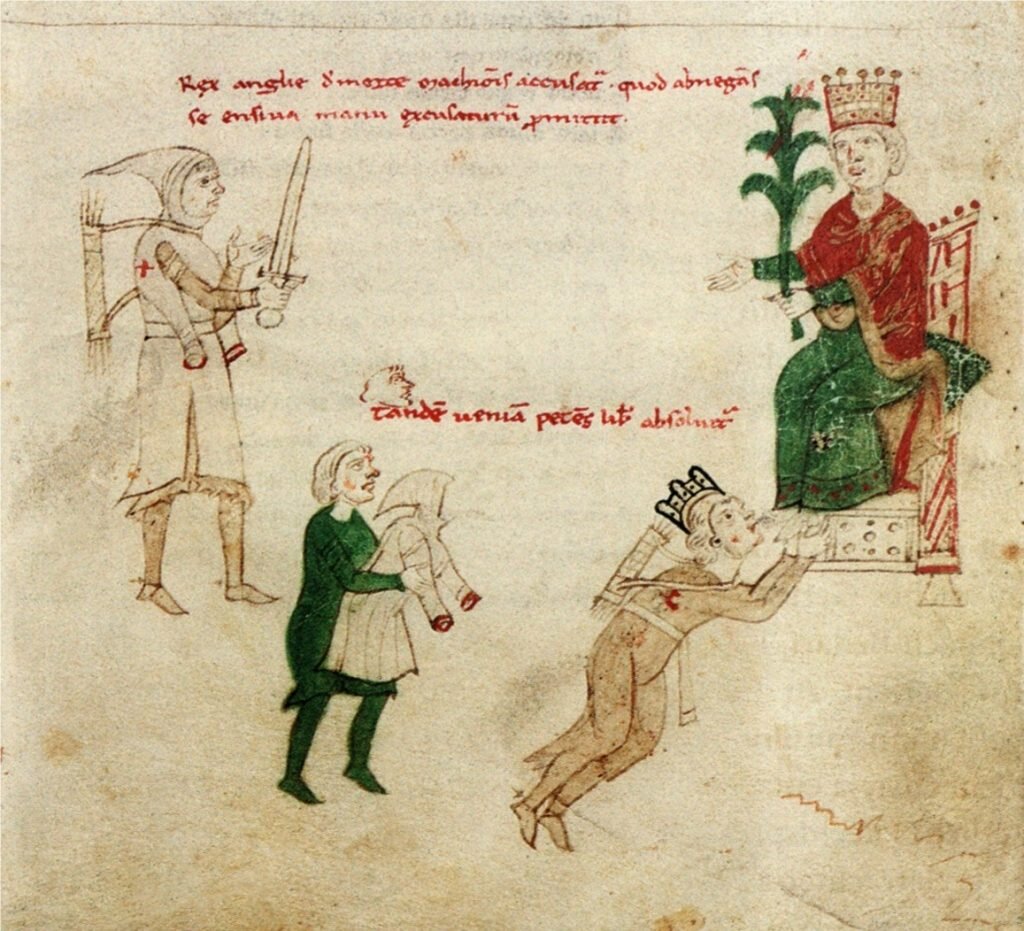 Rex anglie d̄ morte Marchiōis accusat᷑ · quod abnegās
se ensiua manu excusaturū p̄mittit ·
tandē ueniā petēs lib̄ absoluit᷑